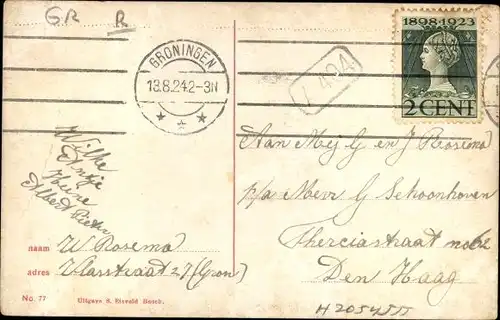 GR R
1898-1923
2 CENT
GRONINGEN
13.8.24 2-3N
494
Aan Mej G en J Rosema
p/a Mevr G Schoonhoven
Therciastraat no 62
Den Haag
Wilke
Antje
Albert Pieter
naam W Rosema
adres Vlasstraat 27 (Gron)
No. 77 Uitgave S. Eisvald Bussch.
H205455